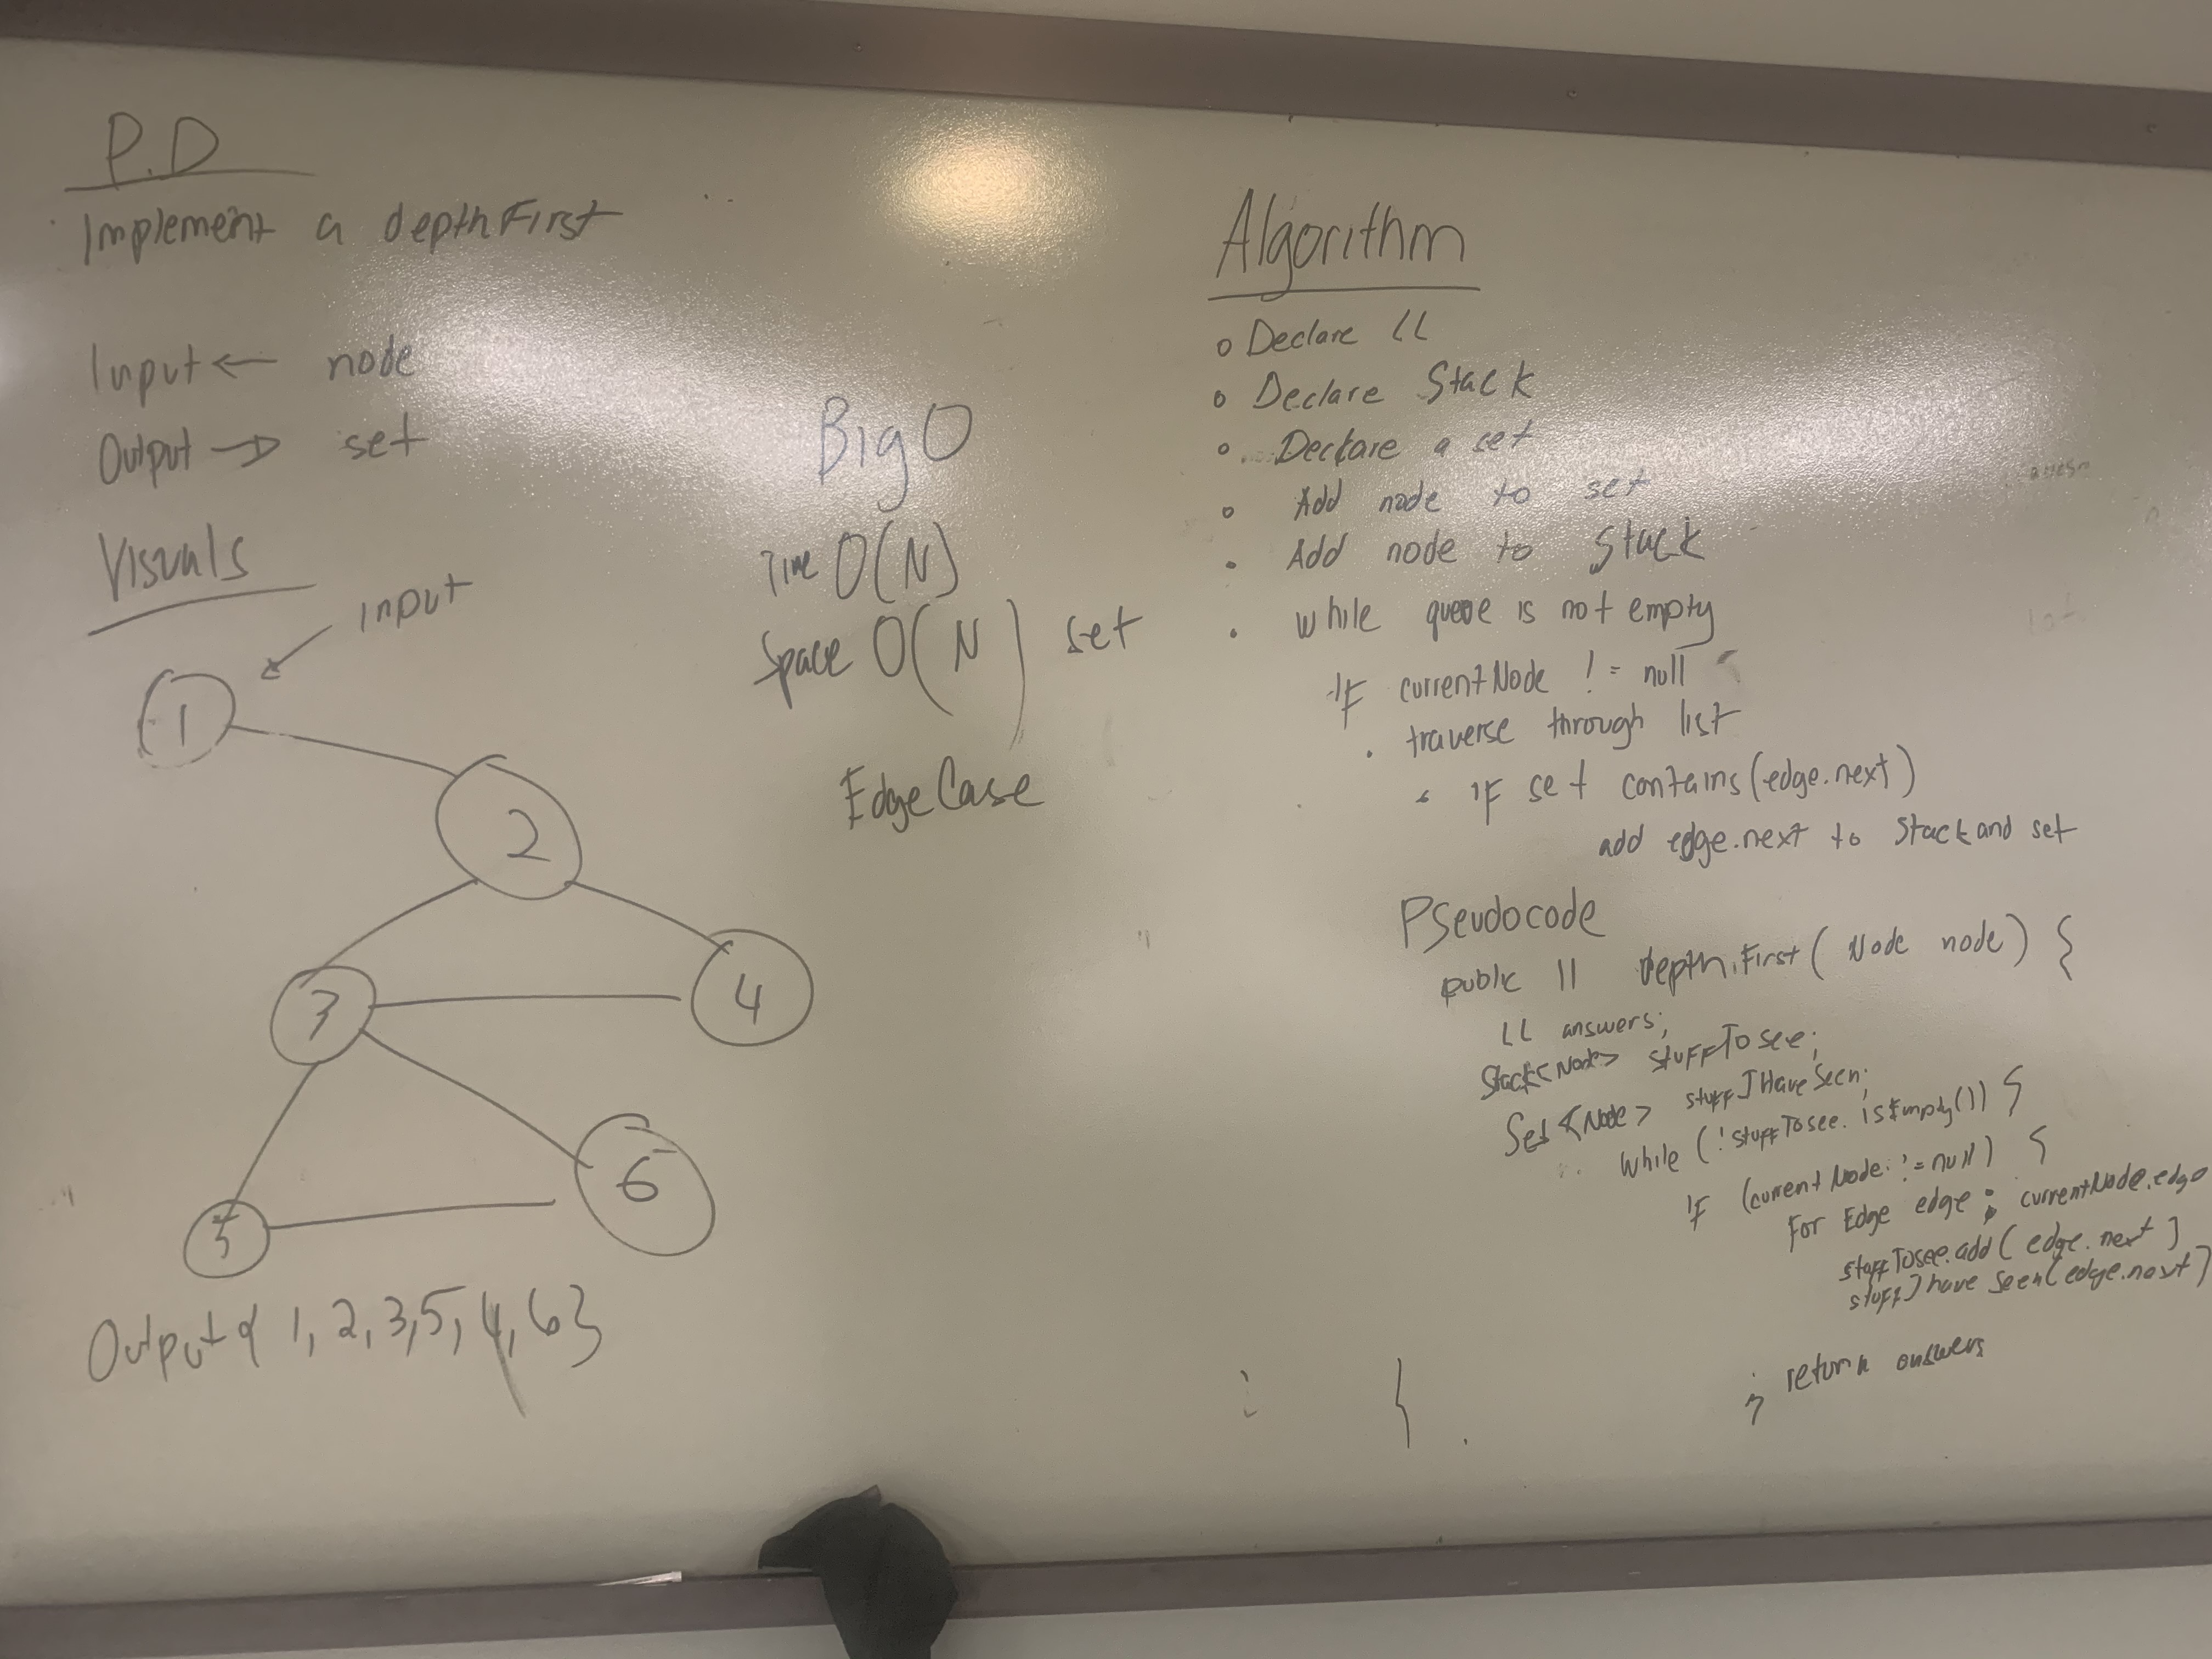 P.D
Implement a depthFirst
Input ← node
Output → set
Visuals
Input
1
2
3
4
5
6
Output { 1, 2, 3, 5, 4, 6 }
Big O
Time O(N)
Space O(N) set
Edge Case
Algorithm
Declare LL
Declare Stack
Declare a set
Add node to set
Add node to Stack
while queue is not empty
IF currentNode != null
traverse through list
IF set contains(edge.next)
add edge.next to Stack and set
Pseudocode
public ll depthFirst( Node node) {
LL answers;
Stack<Node> stuffToSee;
Set<Node> stuffIHaveSeen;
while (!stuffToSee.isEmpty()) {
IF (currentNode != null) {
For Edge edge : currentNode.edge
stuffToSee.add( edge.next )
stuffIhaveSeen(edge.next)
return answers